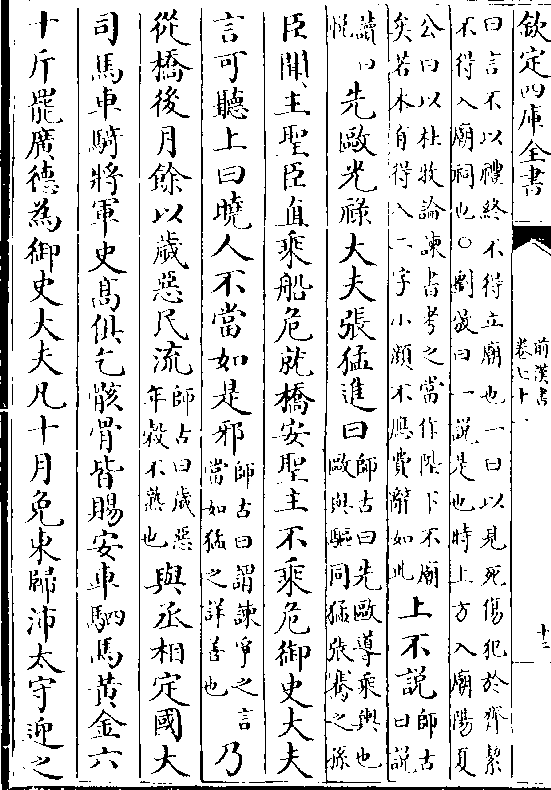 欽定四庫全書
前漢書
卷七十一
十二
曰言不以禮終不得立廟也一曰以見死傷犯於齊絜
不得入廟祠也○劉敞曰一説是也時上方入廟陽夏
公曰以杜牧論諫書考之當作陛下不廟
矣若本自得入二字小顔不應費辭如此
上不説
師古
曰説
讀曰
悅
先敺光祿大夫張猛進曰
師古曰先敺導乘輿也
敺與驅同猛張騫之孫
臣聞主聖臣直乘船危就橋安聖主不乘危御史大夫
言可聽上曰曉人不當如是邪
師古曰謂諫爭之言
當如猛之詳善也
乃
從橋後月餘以歲惡民流
師古曰歲惡
年穀不熟也
與丞相定國大
司馬車騎將軍史髙俱乞骸骨皆賜安車駟馬黄金六
十斤罷廣德為御史大夫凡十月免東歸沛太守迎之